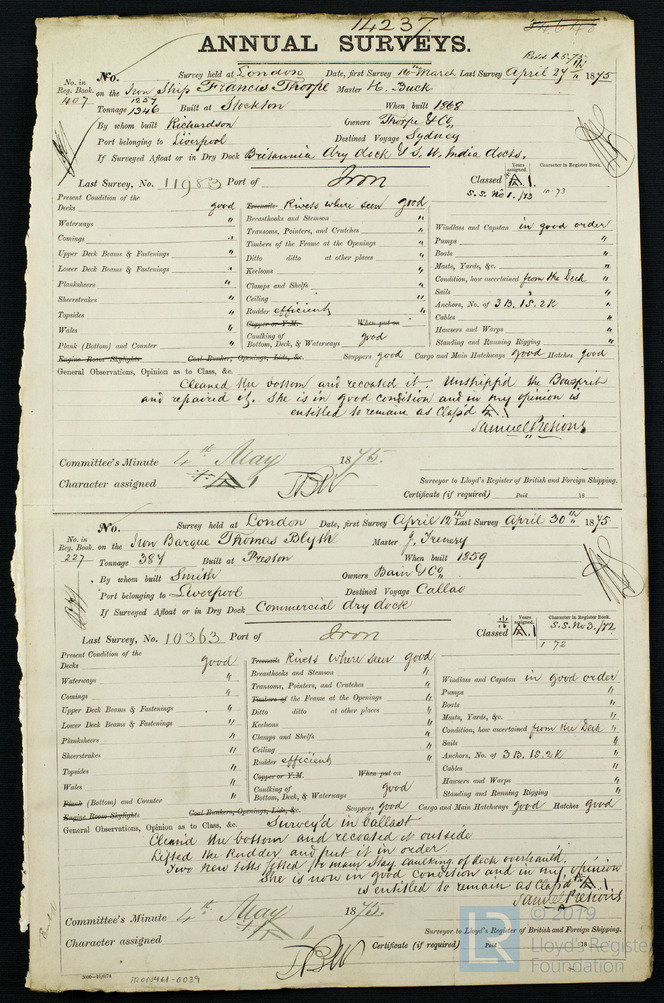 14237.
ANNUAL SURVEYS.
No. Survey held at London Date, first Survey 10th March Last Survey April 27th 1875
No. in Reg. Book. 407 on the Iron Ship Francis Thorpe Master H. Buck
Tonnage 1257 1346 Built at Stockton When built 1868
By whom built Richardson Owners Thorpe & Co.
Port belonging to Liverpool Destined Voyage Sydney
If Surveyed Afloat or in Dry Dock Britannia dry dock & S. W. India docks.
Last Survey, No. 11983 Port of Iron Classed A 1. Years assigned. Character in Register Book.
S.S. No 1. /73 10.73
Present Condition of the
Decks good Treenails Rivets where seen good
Waterways " Breasthooks and Stemson " Windlass and Capstan in good order
Comings " Transoms, Pointers, and Crutches " Pumps "
Upper Deck Beams & Fastenings " Timbers of the Frame at the Openings " Boats "
Lower Deck Beams & Fastenings " Ditto ditto at other places " Masts, Yards, &c. "
Planksheers " Keelsons " Condition, how ascertained from the Deck
Sheerstrakes " Clamps and Shelfs " Sails "
Topsides " Ceiling " Anchors, No. of 3 B. 1 S. 2 K
Wales " Rudder efficient Cables "
Plank (Bottom) and Counter " Copper or Y.M. When put on Hawsers and Warps "
Caulking of Bottom, Deck, & Waterways good Standing and Running Rigging "
Engine Room Skylights Coal Bunker, Openings, Lids, &c. Scuppers good Cargo and Main Hatchways good Hatches good
General Observations, Opinion as to Class, &c.
Cleaned the bottom and recoated it. Unshipp'd the Bowsprit
and repaired it. She is in good condition and in my opinion is
entitled to remain as Class'd A 1
Samuel Pretious
Committee's Minute 4th May 1875.
Character assigned A 1 Surveyor to Lloyd's Register of British and Foreign Shipping.
Certificate (if required) Paid 18
No. Survey held at London Date, first Survey April 12th Last Survey April 30th 1875
No. in Reg. Book. 227 on the Iron Barque Thomas Blyth Master J. Trenery
Tonnage 387 Built at Preston When built 1859
By whom built Smith Owners Bain & Co.
Port belonging to Liverpool Destined Voyage Callao
If Surveyed Afloat or in Dry Dock Commercial dry dock
Last Survey, No. 10363 Port of Iron Classed A 1. Years assigned. Character in Register Book.
S.S. No 3. /72
1.72
Present Condition of the
Decks good Treenails Rivets where seen good
Waterways " Breasthooks and Stemson " Windlass and Capstan in good order
Comings " Transoms, Pointers, and Crutches " Pumps "
Upper Deck Beams & Fastenings " Timbers of the Frame at the Openings " Boats "
Lower Deck Beams & Fastenings " Ditto ditto at other places " Masts, Yards, &c. "
Planksheers " Keelsons " Condition, how ascertained from the Deck "
Sheerstrakes " Clamps and Shelfs " Sails "
Topsides " Ceiling " Anchors, No. of 3 B. 1 S. 2 K
Wales " Rudder efficient Cables "
Plank (Bottom) and Counter " Copper or Y.M. When put on Hawsers and Warps "
Caulking of Bottom, Deck, & Waterways good Standing and Running Rigging "
Engine Room Skylights Coal Bunkers, Openings, Lids, &c. Scuppers good Cargo and Main Hatchways good Hatches good
General Observations, Opinion as to Class, &c. Survey'd in ballast
Clean'd the bottom and recoated it outside
Lifted the Rudder and put it in order.
Two New bitts fitted to main stay, caulking of deck overhaul'd.
She is now in good condition and in my opinion
is entitled to remain as Class'd A 1
Samuel Pretious
Committee's Minute 4th May 1875.
Character assigned A 1 Surveyor to Lloyd's Register of British and Foreign Shipping.
Certificate (if required) Paid 18
IRON461-0039
© 2019
Lloyd's Register
Foundation